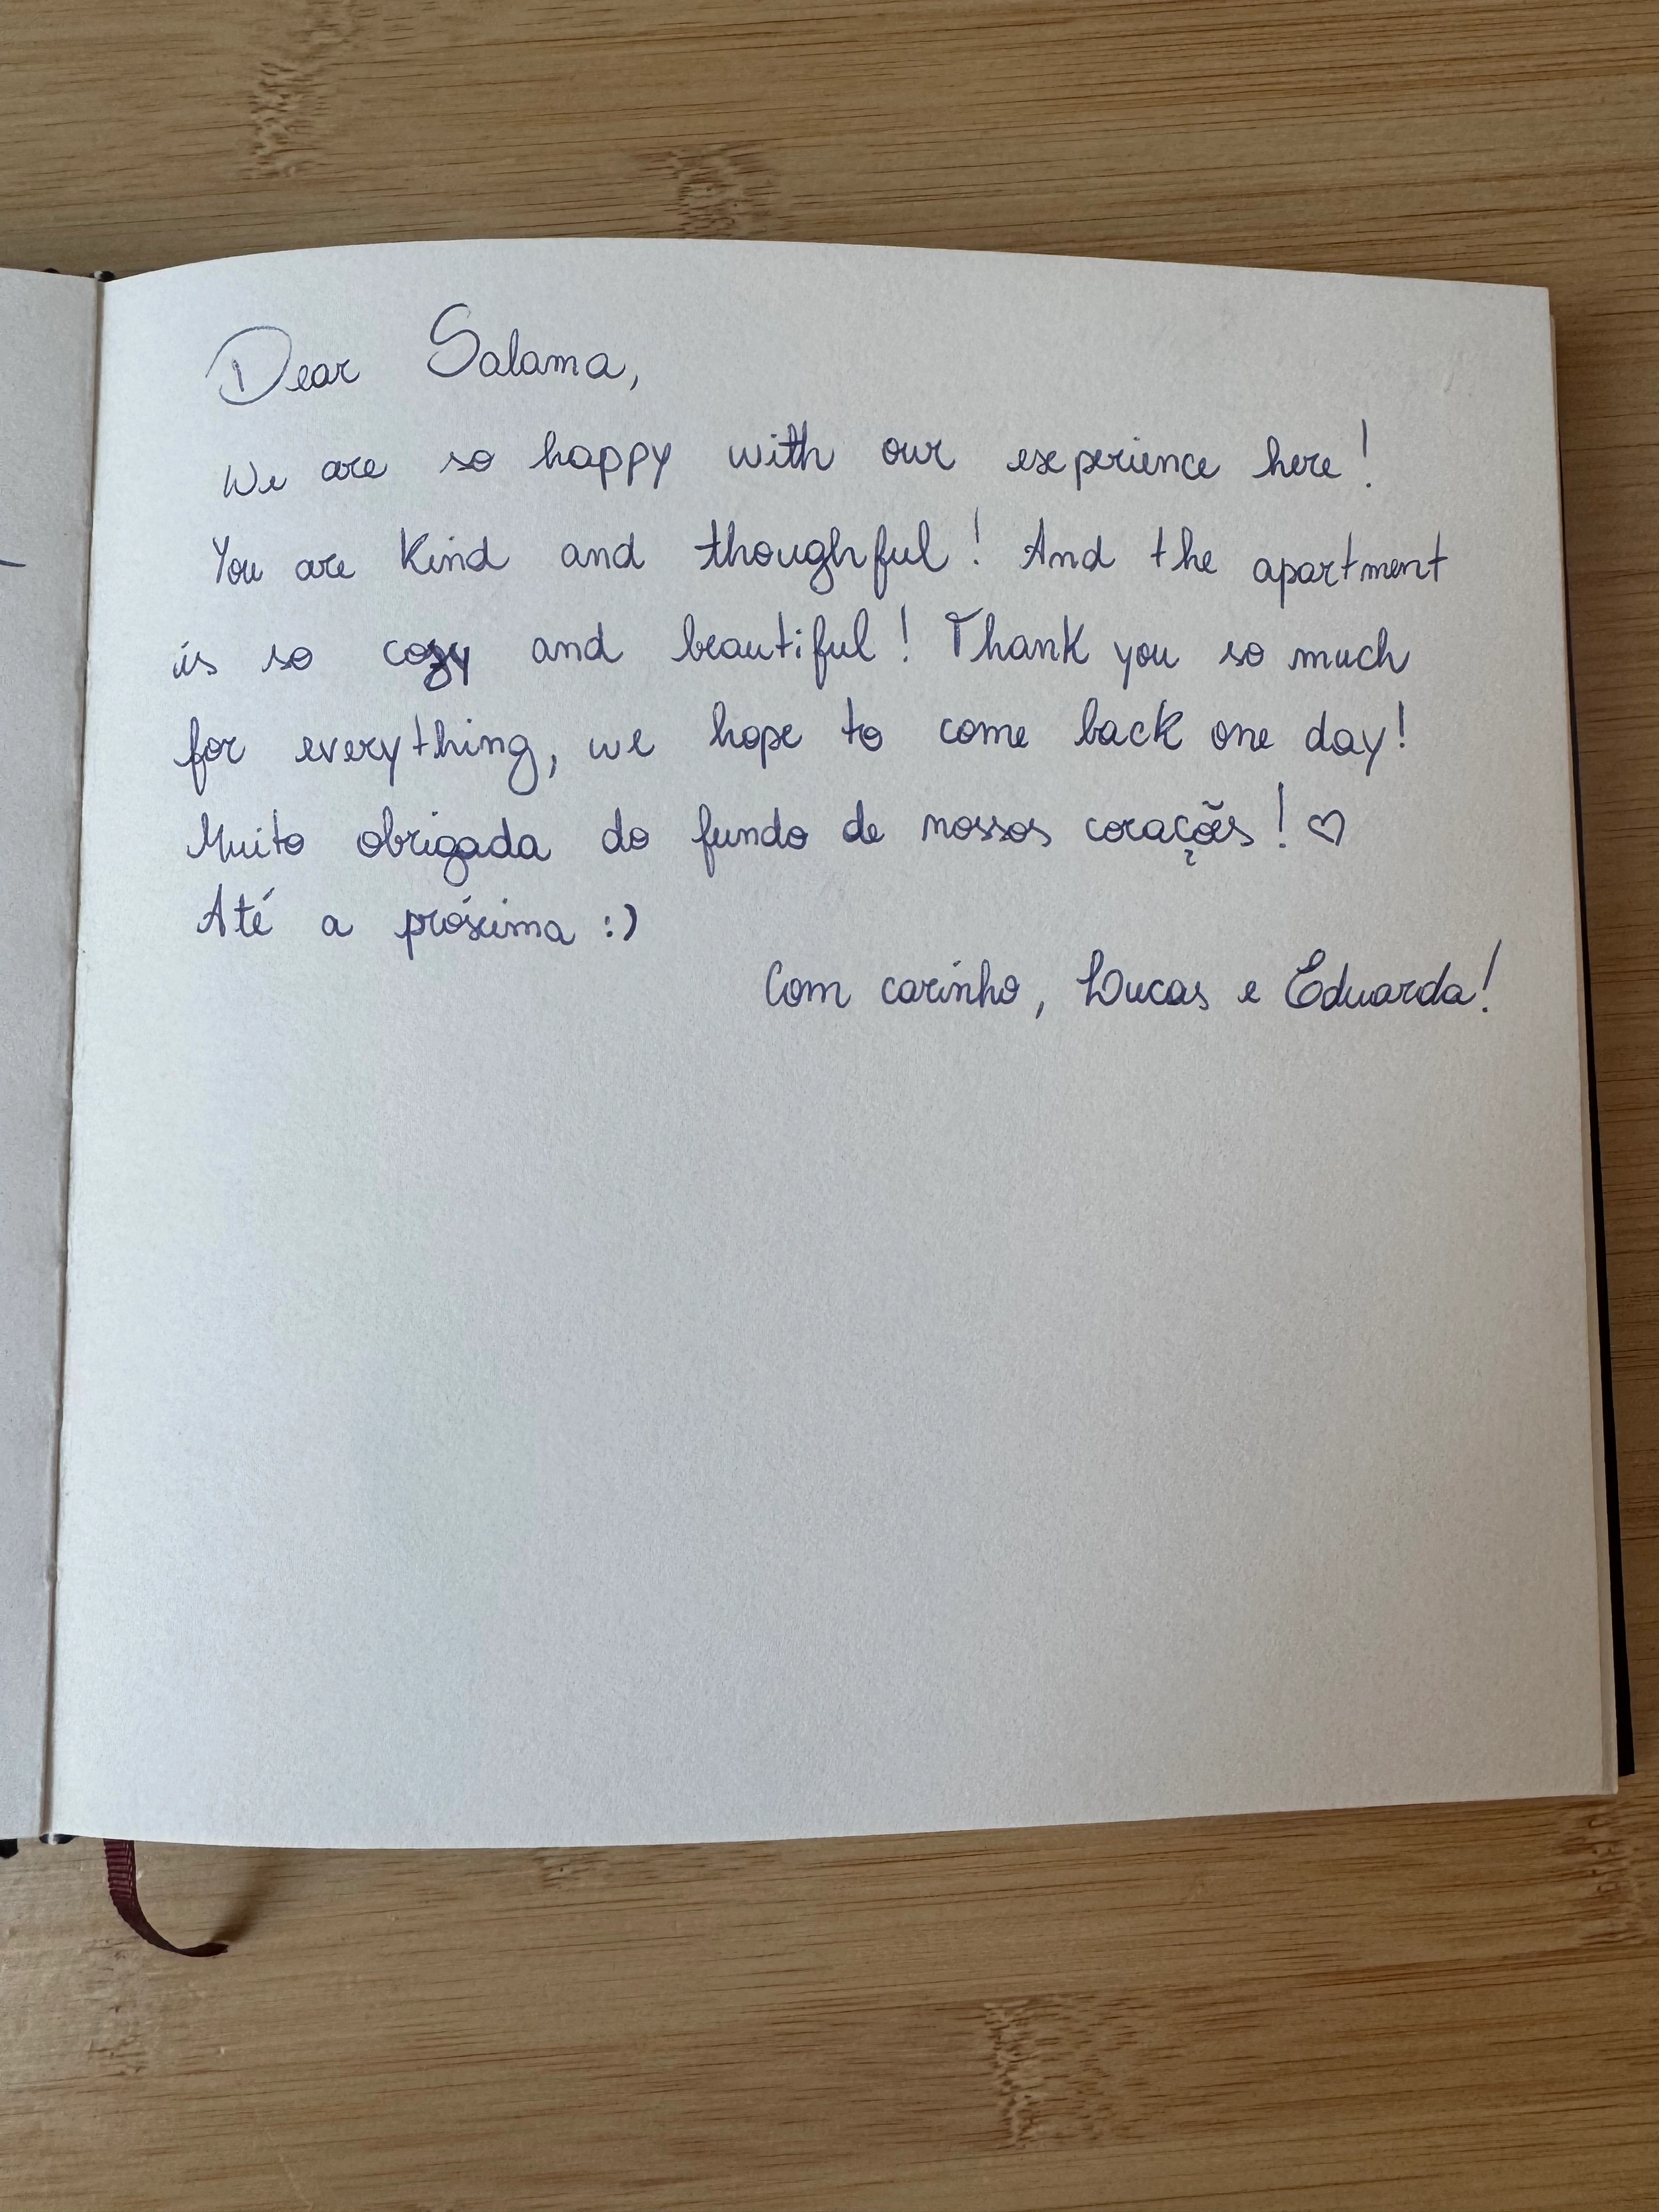 Dear Salama,
We are so happy with our experience here!
You are kind and thoughful! And the apartment
is so cozy and beautiful! Thank you so much
for everything, we hope to come back one day!
Muito obrigada do fundo de nossos corações! ♡
Até a próxima :)
Com carinho, Lucas e Eduarda!